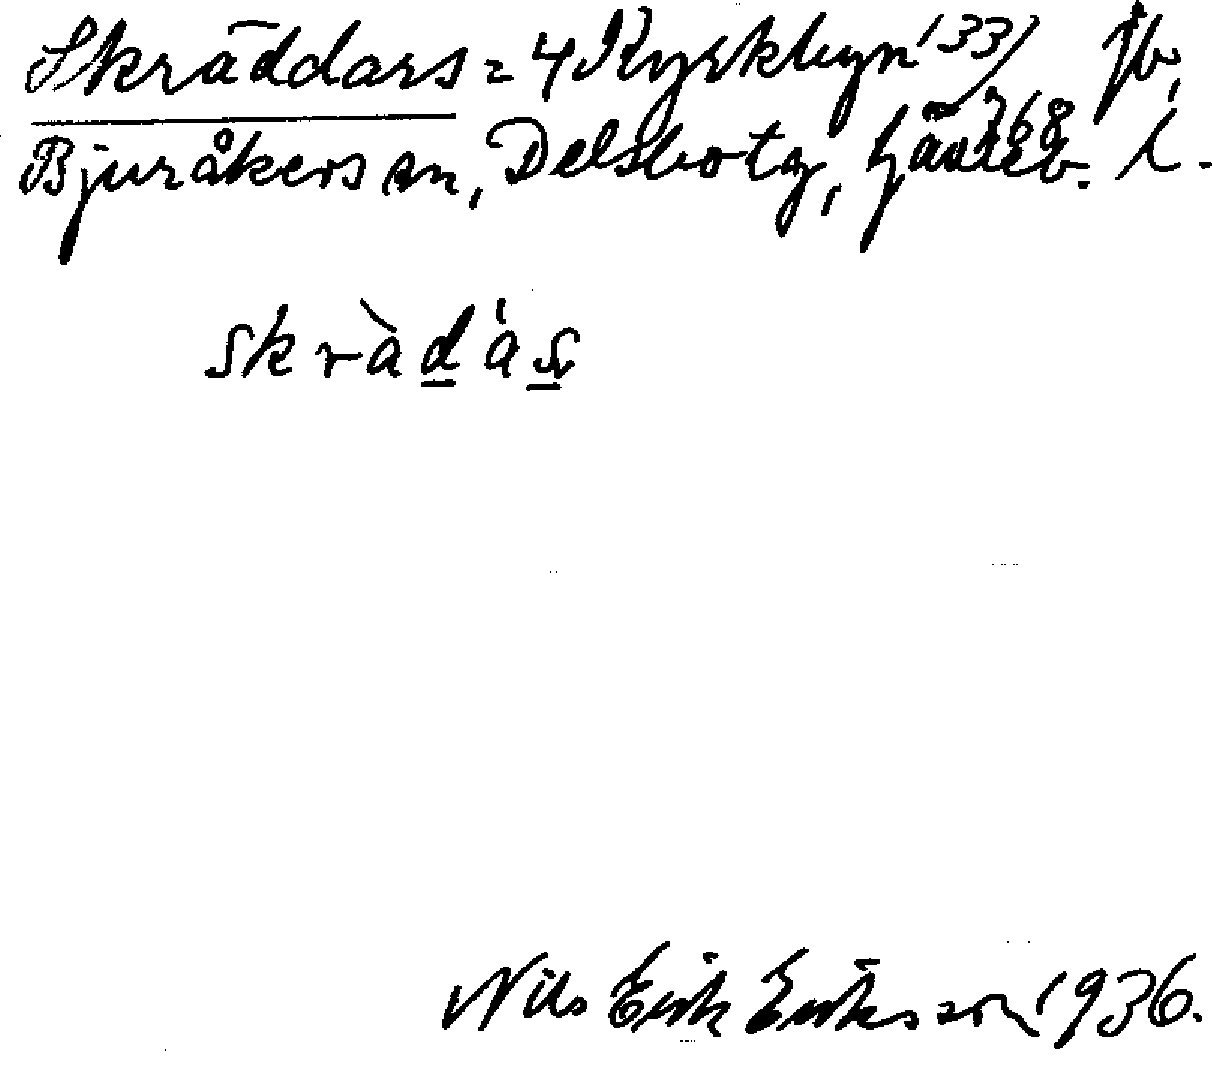 Skräddars = 4 Kyrkbyn 133/768 jb,
Bjuråkers sn, Delsbo tg, Gävleb. l.
skràdás
Nils Erik Eriksson 1936.